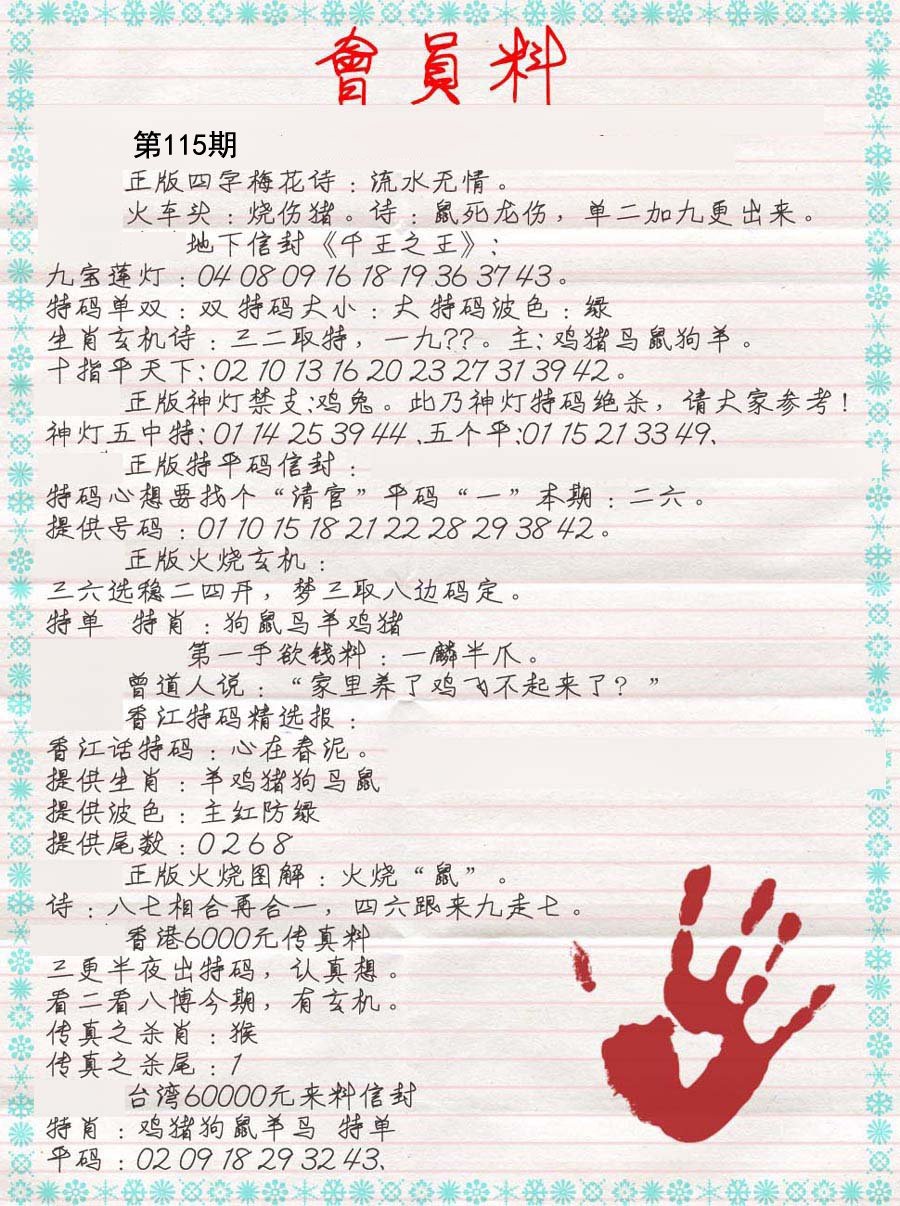 會員料
第115期
正版四字梅花诗：流水无情。
火车头：烧伤猪。诗：鼠死龙伤，单二加九更出来。
地下信封《千王之王》：
九宝莲灯：04 08 09 16 18 19 36 37 43。
特码单双：双 特码大小：大 特码波色：绿
生肖玄机诗：三二取特，一九??。主：鸡猪马鼠狗羊。
十指平天下：02 10 13 16 20 23 27 31 39 42。
正版神灯禁支：鸡兔。此乃神灯特码绝杀，请大家参考！
神灯五中特：01 14 25 39 44、五个平：01 15 21 33 49、
正版特平码信封：
特码心想要找个“清官”平码“一”本期：二六。
提供号码：01 10 15 18 21 22 28 29 38 42。
正版火烧玄机：
三六选稳二四开，梦三取八边码定。
特单 特肖：狗鼠马羊鸡猪
第一手欲钱料：一麟半爪。
曾道人说：“家里养了鸡飞不起来了？”
香江特码精选报：
香江话特码：心在春泥。
提供生肖：羊鸡猪狗马鼠
提供波色：主红防绿
提供尾数：0 2 6 8
正版火烧图解：火烧“鼠”。
诗：八七相合再合一，四六跟来九走七。
香港6000元传真料
三更半夜出特码，认真想。
看二看八博今期，有玄机。
传真之杀肖：猴
传真之杀尾：1
台湾60000元来料信封
特肖：鸡猪狗鼠羊马 特单
平码：02 09 18 29 32 43、